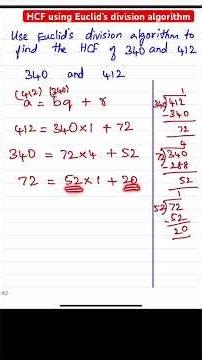 HCF using Euclid's division algorithm
Use Euclid's division algorithm to
find the HCF of 340 and 412
340 and 412
(412) (340)
a = bq + r
412 = 340×1 + 72
340 = 72×4 + 52
72 = 52×1 + 20
1
340 412
-340
72
4
72 340
288
52
1
52 72
-52
20